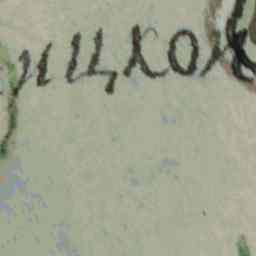 ицкой